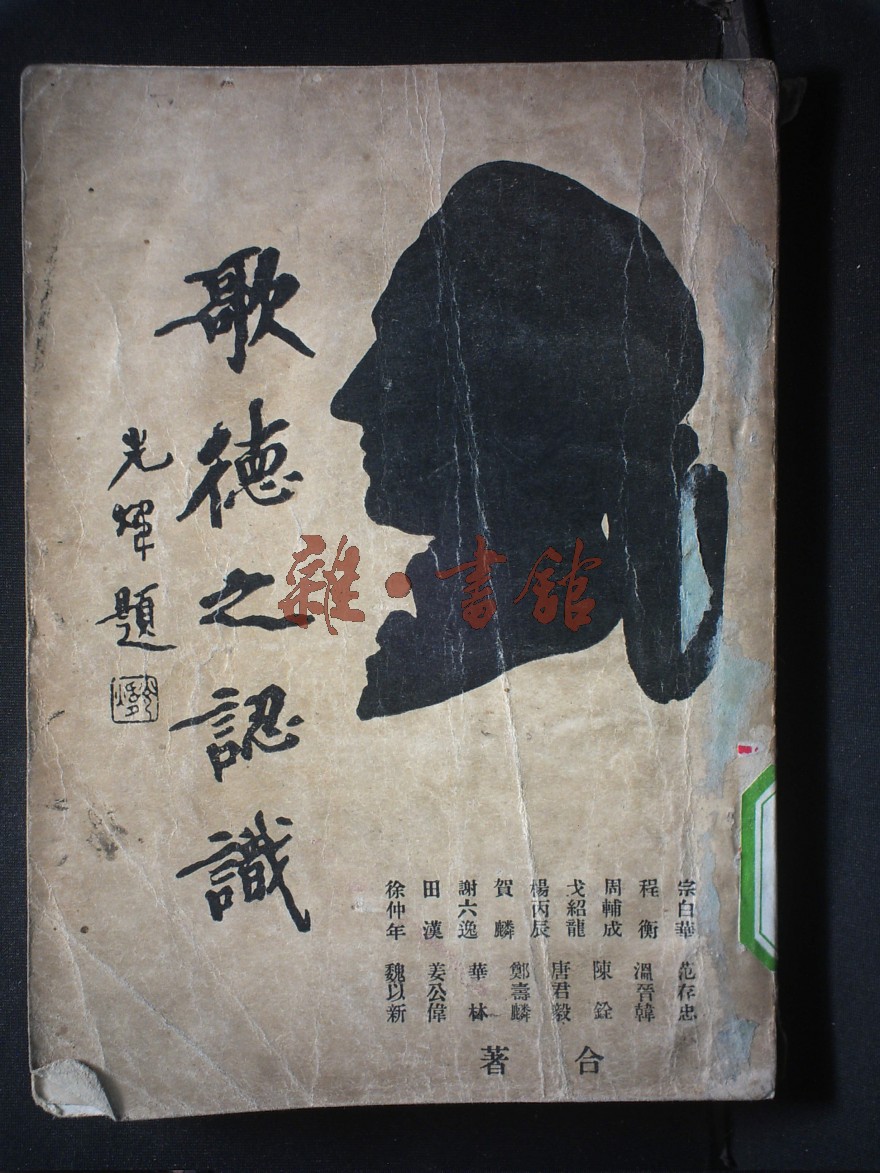 歌德之認識
光煇題
雜·書館
宗白華 范存忠
程衡 溫晉韓
周輔成 陳銓
戈紹龍 唐君毅
楊丙辰 鄭壽麟
賀麟 華林
謝六逸 姜公偉
田漢 魏以新
徐仲年
合著